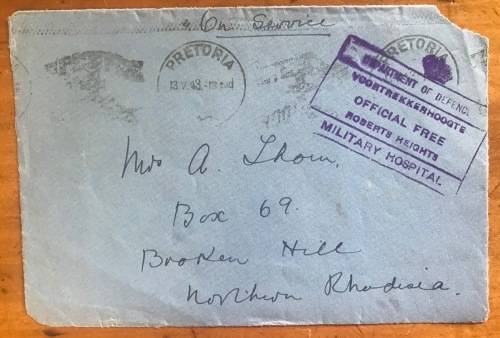 "On Service
PRETORIA
13 V 43
PRETORIA
DEPARTMENT OF DEFENCE
VOORTREKKERHOOGTE
OFFICIAL FREE
ROBERTS HEIGHTS
MILITARY HOSPITAL
Mrs A. Thom.
Box 69.
Broken Hill
Northern Rhodisia.